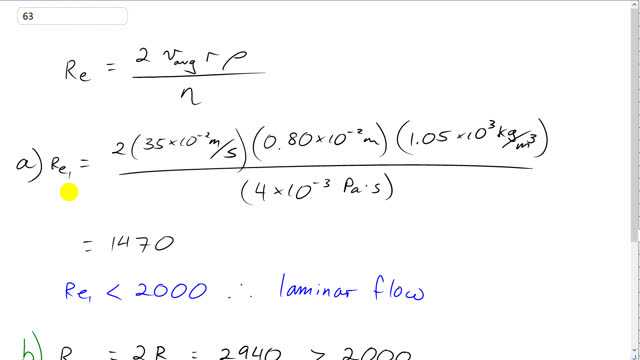 63
Re = 2 v_avg r ρ / η
a) Re₁ = 2 (35×10⁻² m/s) (0.80×10⁻² m) (1.05×10³ kg/m³) / (4×10⁻³ Pa·s)
= 1470
Re₁ < 2000 ∴ laminar flow
b) R = 2R = 2940 > 2000